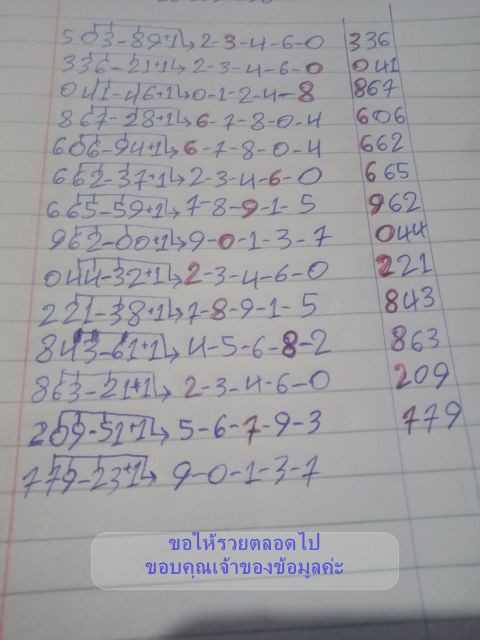 503-89+1→2-3-4-6-0 336
336-21+1→2-3-4-6-0 041
041-46+1→0-1-2-4-8 867
867-28+1→6-7-8-0-4 606
606-94+1→6-7-8-0-4 662
662-37+1→2-3-4-6-0 665
665-59+1→7-8-9-1-5 962
962-00+1→9-0-1-3-7 044
044-32+1→2-3-4-6-0 221
221-38+1→7-8-9-1-5 843
843-61+1→4-5-6-8-2 863
863-21+1→2-3-4-6-0 209
209-51+1→5-6-7-9-3 779
779-23+1→9-0-1-3-7
ขอให้รวยตลอดไป
ขอบคุณเจ้าของข้อมูลค่ะ